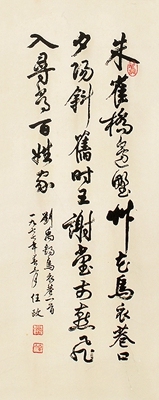 朱雀橋邊野艸花烏衣巷口
夕陽斜舊時王謝堂前燕飛
入尋常百姓家
劉禹錫烏衣巷一首
一九七 年 月 任政